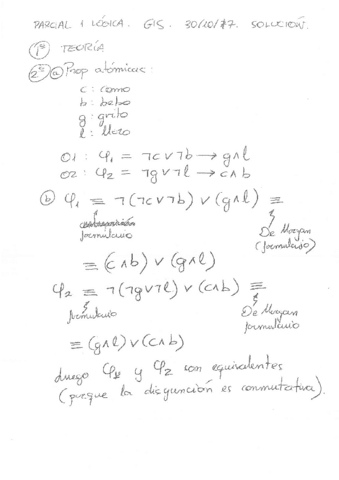 PARCIAL 1 LÓGICA. GIS. 30/10/17. SOLUCIÓN.
1º TEORÍA
2º a) Prop atómicas:
c: como
b: bebo
g: grito
l: lloro
O1: φ₁ = ¬c∨¬b → g∧l
O2: φ₂ = ¬g∨¬l → c∧b
b) φ₁ ≡ ¬(¬c∨¬b) ∨ (g∧l) ≡
formulario De Morgan (formulario)
≡ (c∧b) ∨ (g∧l)
φ₂ ≡ ¬(¬g∨¬l) ∨ (c∧b) ≡
formulario De Morgan formulario
≡ (g∧l) ∨ (c∧b)
luego φ₁ y φ₂ son equivalentes
(porque la disyunción es conmutativa).